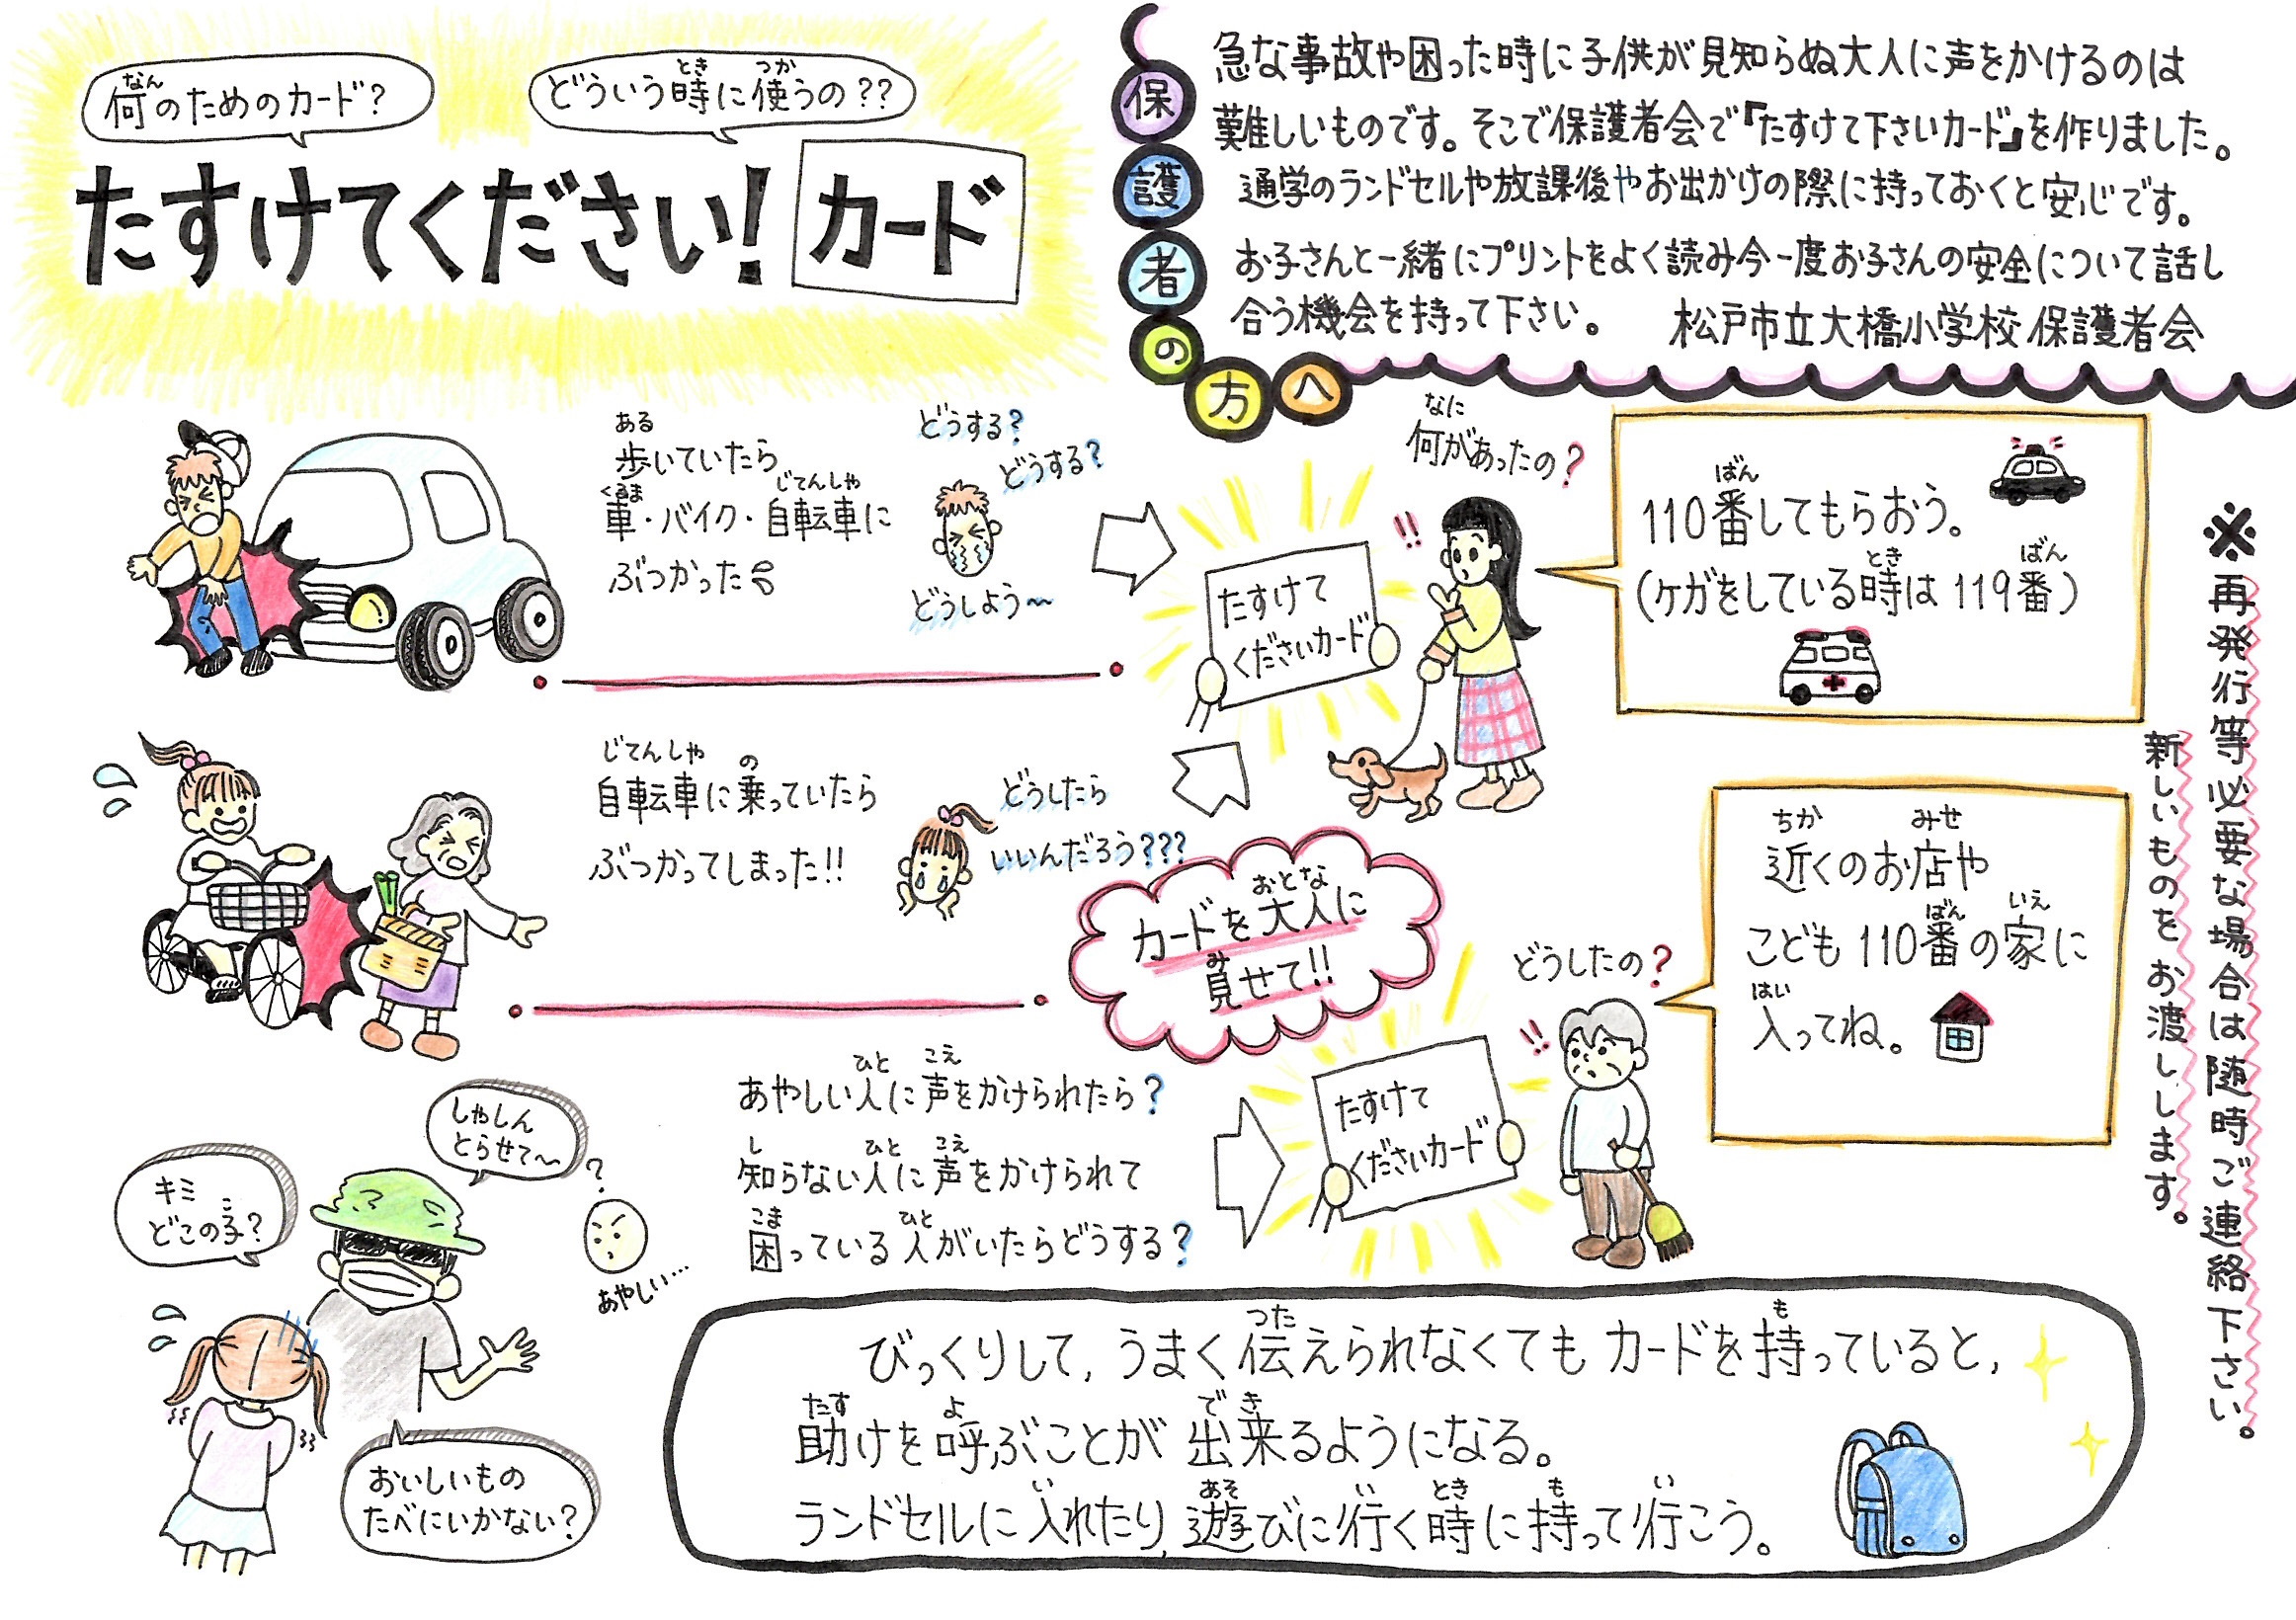 何のためのカード?
どういう時に使うの??
たすけてください!カード
保護者の方へ
急な事故や困った時に子供が見知らぬ大人に声をかけるのは
難しいものです。そこで保護者会で『たすけて下さいカード』を作りました。
通学のランドセルや放課後やお出かけの際に持っておくと安心です。
お子さんと一緒にプリントをよく読み今一度お子さんの安全について話し
合う機会を持って下さい。 松戸市立大橋小学校保護者会
歩いていたら
車・バイク・自転車に
ぶつかった
どうする?
どうする?
どうしよう〜
たすけて
くださいカード
何があったの?
!!
110番してもらおう。
(ケガをしている時は119番)
自転車に乗っていたら
ぶつかってしまった!!
どうしたら
いいんだろう???
カードを大人に
見せて!!
どうしたの?
!!
近くのお店や
こども110番の家に
入ってね。
キミ
どこの子?
しゃしん
とらせて〜
?
あやしい…
おいしいもの
たべにいかない?
あやしい人に声をかけられたら?
知らない人に声をかけられて
困っている人がいたらどうする?
たすけて
くださいカード
びっくりして,うまく伝えられなくてもカードを持っていると,
助けを呼ぶことが出来るようになる。
ランドセルに入れたり,遊びに行く時に持って行こう。
※再発行等必要な場合は随時ご連絡下さい。
新しいものをお渡しします。